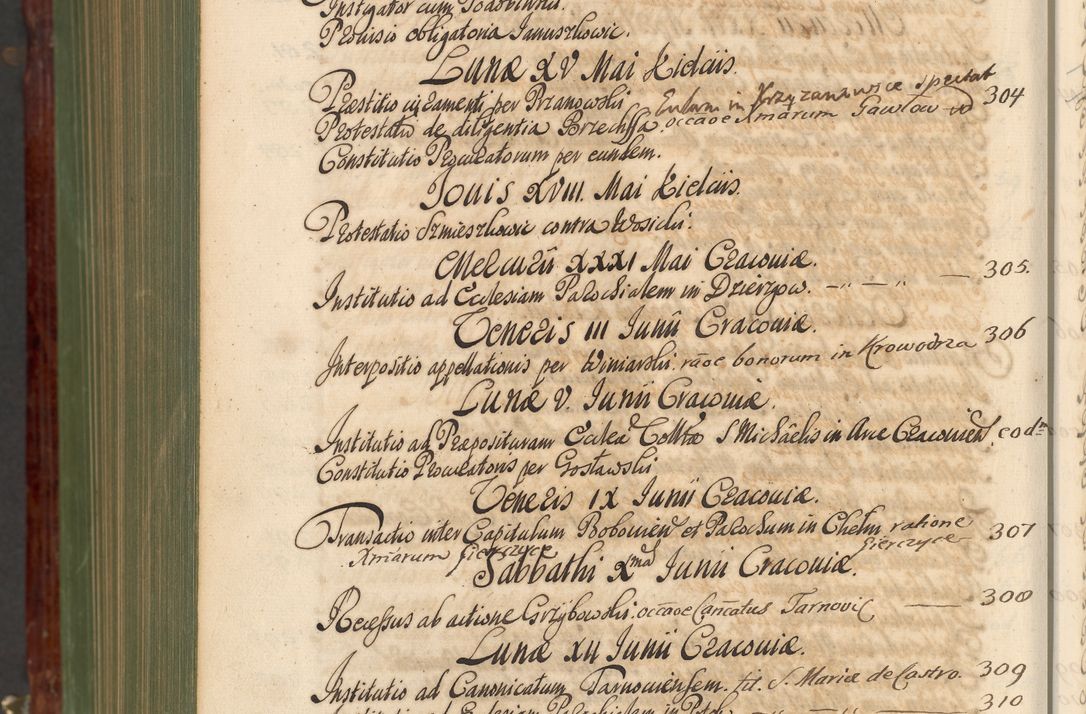 Instigator cum
Provisio obligatoria Januszkowic.
Lunæ XV Mai Kielciis.
Præstitio iuramenti per Przanowski Eulam in Krzyzanowice spectat 304
Protestatio de diligentia Brzechffa occaõe Xmarum Gawlow
Constitutio Procuratorum per eundem.
Jouis XVIII. Mai Kielciis.
Protestatio Szmieszkowic contra Wosicki.
Mercurii XXXI Mai Cracouiæ.
Institutio ad Ecclesiam Parochialem in Dzierzgow. — " — " — 305.
Veneris III Junii Cracouiæ.
Interpositio appellationis per Winiarski. rãoe bonorum in Krowodrza 306
Lunæ V. Junii Cracouiæ.
Institutio ad Præposituram Eccleæ Colltæ S Michãelis in Arce Cracouien. eodm
Constitutio Procuratoris per Gosławski
Veneris IX Junii Cracouiæ.
Transactio inter Capitulum Bobouien et Parochum in Chełm ratione 307
Xmarum Gierczyce Gierczyce
Sabbathi Xma Junii Cracouiæ.
Recessus ab actione Grzybowski. occãoe Cancãtus Tarnovic — 308
Lunæ XII Junii Cracouiæ.
Institutio ad Canonicatum Tarnouiensem. tit. S. Mariæ de Castro. 309
310